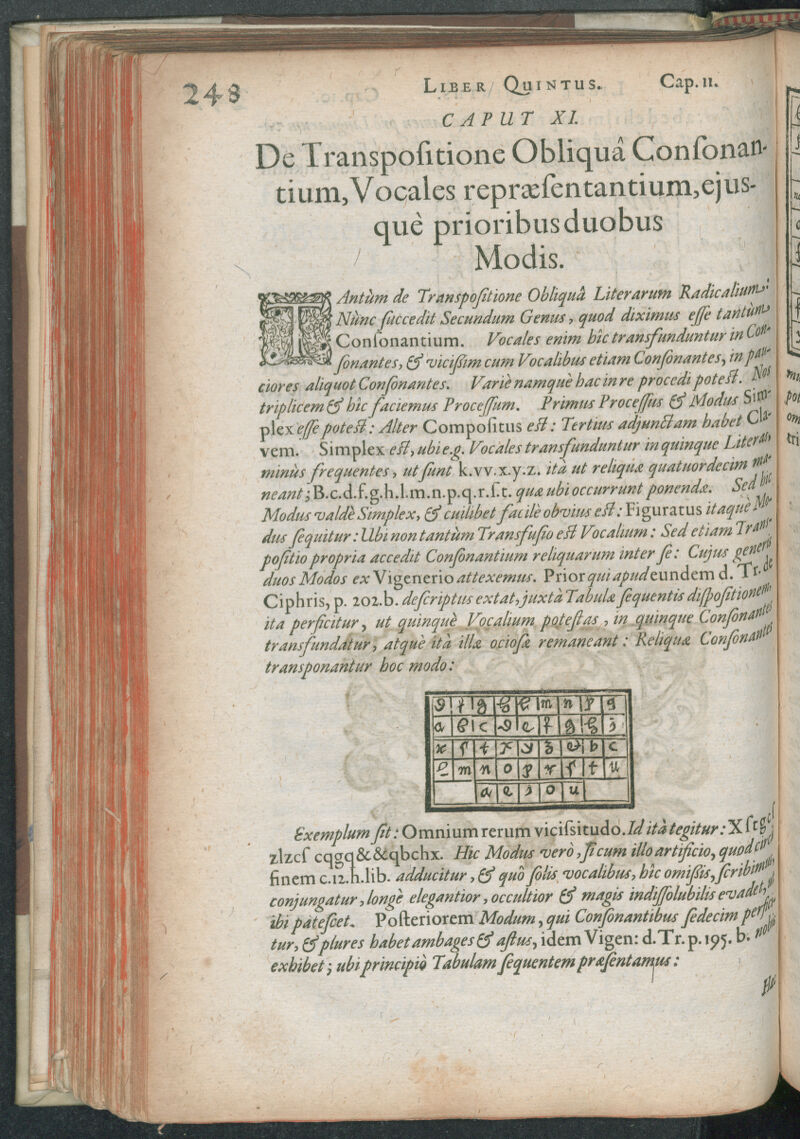 248 LIBER QUINTUS. Cap. 11.
CAPUT XI.
De Transpoſitione Obliquâ Conſonan-
tium, Vocales repræſentantium, ejus-
què prioribus duobus
Modis.
TAntùm de Transpoſitione Obliquâ Literarum Radicalium:
Nùnc ſuccedit Secundum Genus, quod diximus eſſe tantùm
Conſonantium. Vocales enim hîc transfunduntur in Con-
ſonantes, & viciſſim cum Vocalibus etiam Conſonantes, in pau-
ciores aliquot Conſonantes. Variè namquè hac in re procedi poteſt. Nos
triplicem & hîc faciemus Proceſſum. Primus Proceſſus & Modus Sim-
plex eſſe poteſt: Alter Compoſitus eſt: Tertius adjunctam habet Cla-
vem. Simplex eſt, ubi e.g. Vocales transfunduntur in quinque Literas,
minùs frequentes, ut ſunt k.vv.x.y.z. ità ut reliquæ quatuordecim ma-
neant; B.c.d.f.g.h.l.m.n.p.q.r.ſ.t. quæ ubi occurrunt ponendæ. Sed hic
Modus valdè Simplex, & cuilibet facilè obvius eſt: Figuratus itaquè Mo-
dus ſequitur: Ubi non tantùm Transfuſio eſt Vocalium: Sed etiam Tranſ-
poſitio propria accedit Conſonantium reliquarum inter ſe: Cujus generis
duos Modos ex Vigenerio attexemus. Prior qui apud eundem d. Tr. de
Ciphris, p. 202.b. deſcriptus extat, juxtà Tabulæ ſequentis diſpoſitionem,
ita perficitur, ut quinquè Vocalium poteſtas, in quinque Conſonantes
transfundatur, atquè ità illæ ocioſæ remaneant: Reliquæ Conſonantes
transponantur hoc modo:
a e i o u
Exemplum ſit: Omnium rerum viciſsitudo. Id ità tegitur: X ſtgcſ
zlzcſ cqgq&&qbchx. Hic Modus verò, ſi cum illo artificio, quod circà
finem c.12.h.lib. adducitur, & quô ſolis vocalibus, hîc omiſſis, ſcribimus,
conjungatur, longè elegantior, occultior & magis indiſſolubilis evadet,
ibi pateſcet. Poſteriorem Modum, qui Conſonantibus ſedecim perfici-
tur, & plures habet ambages & aſtus, idem Vigen: d. Tr. p. 195. b. nobis
exhibet; ubi principiò Tabulam ſequentem præſentamus: